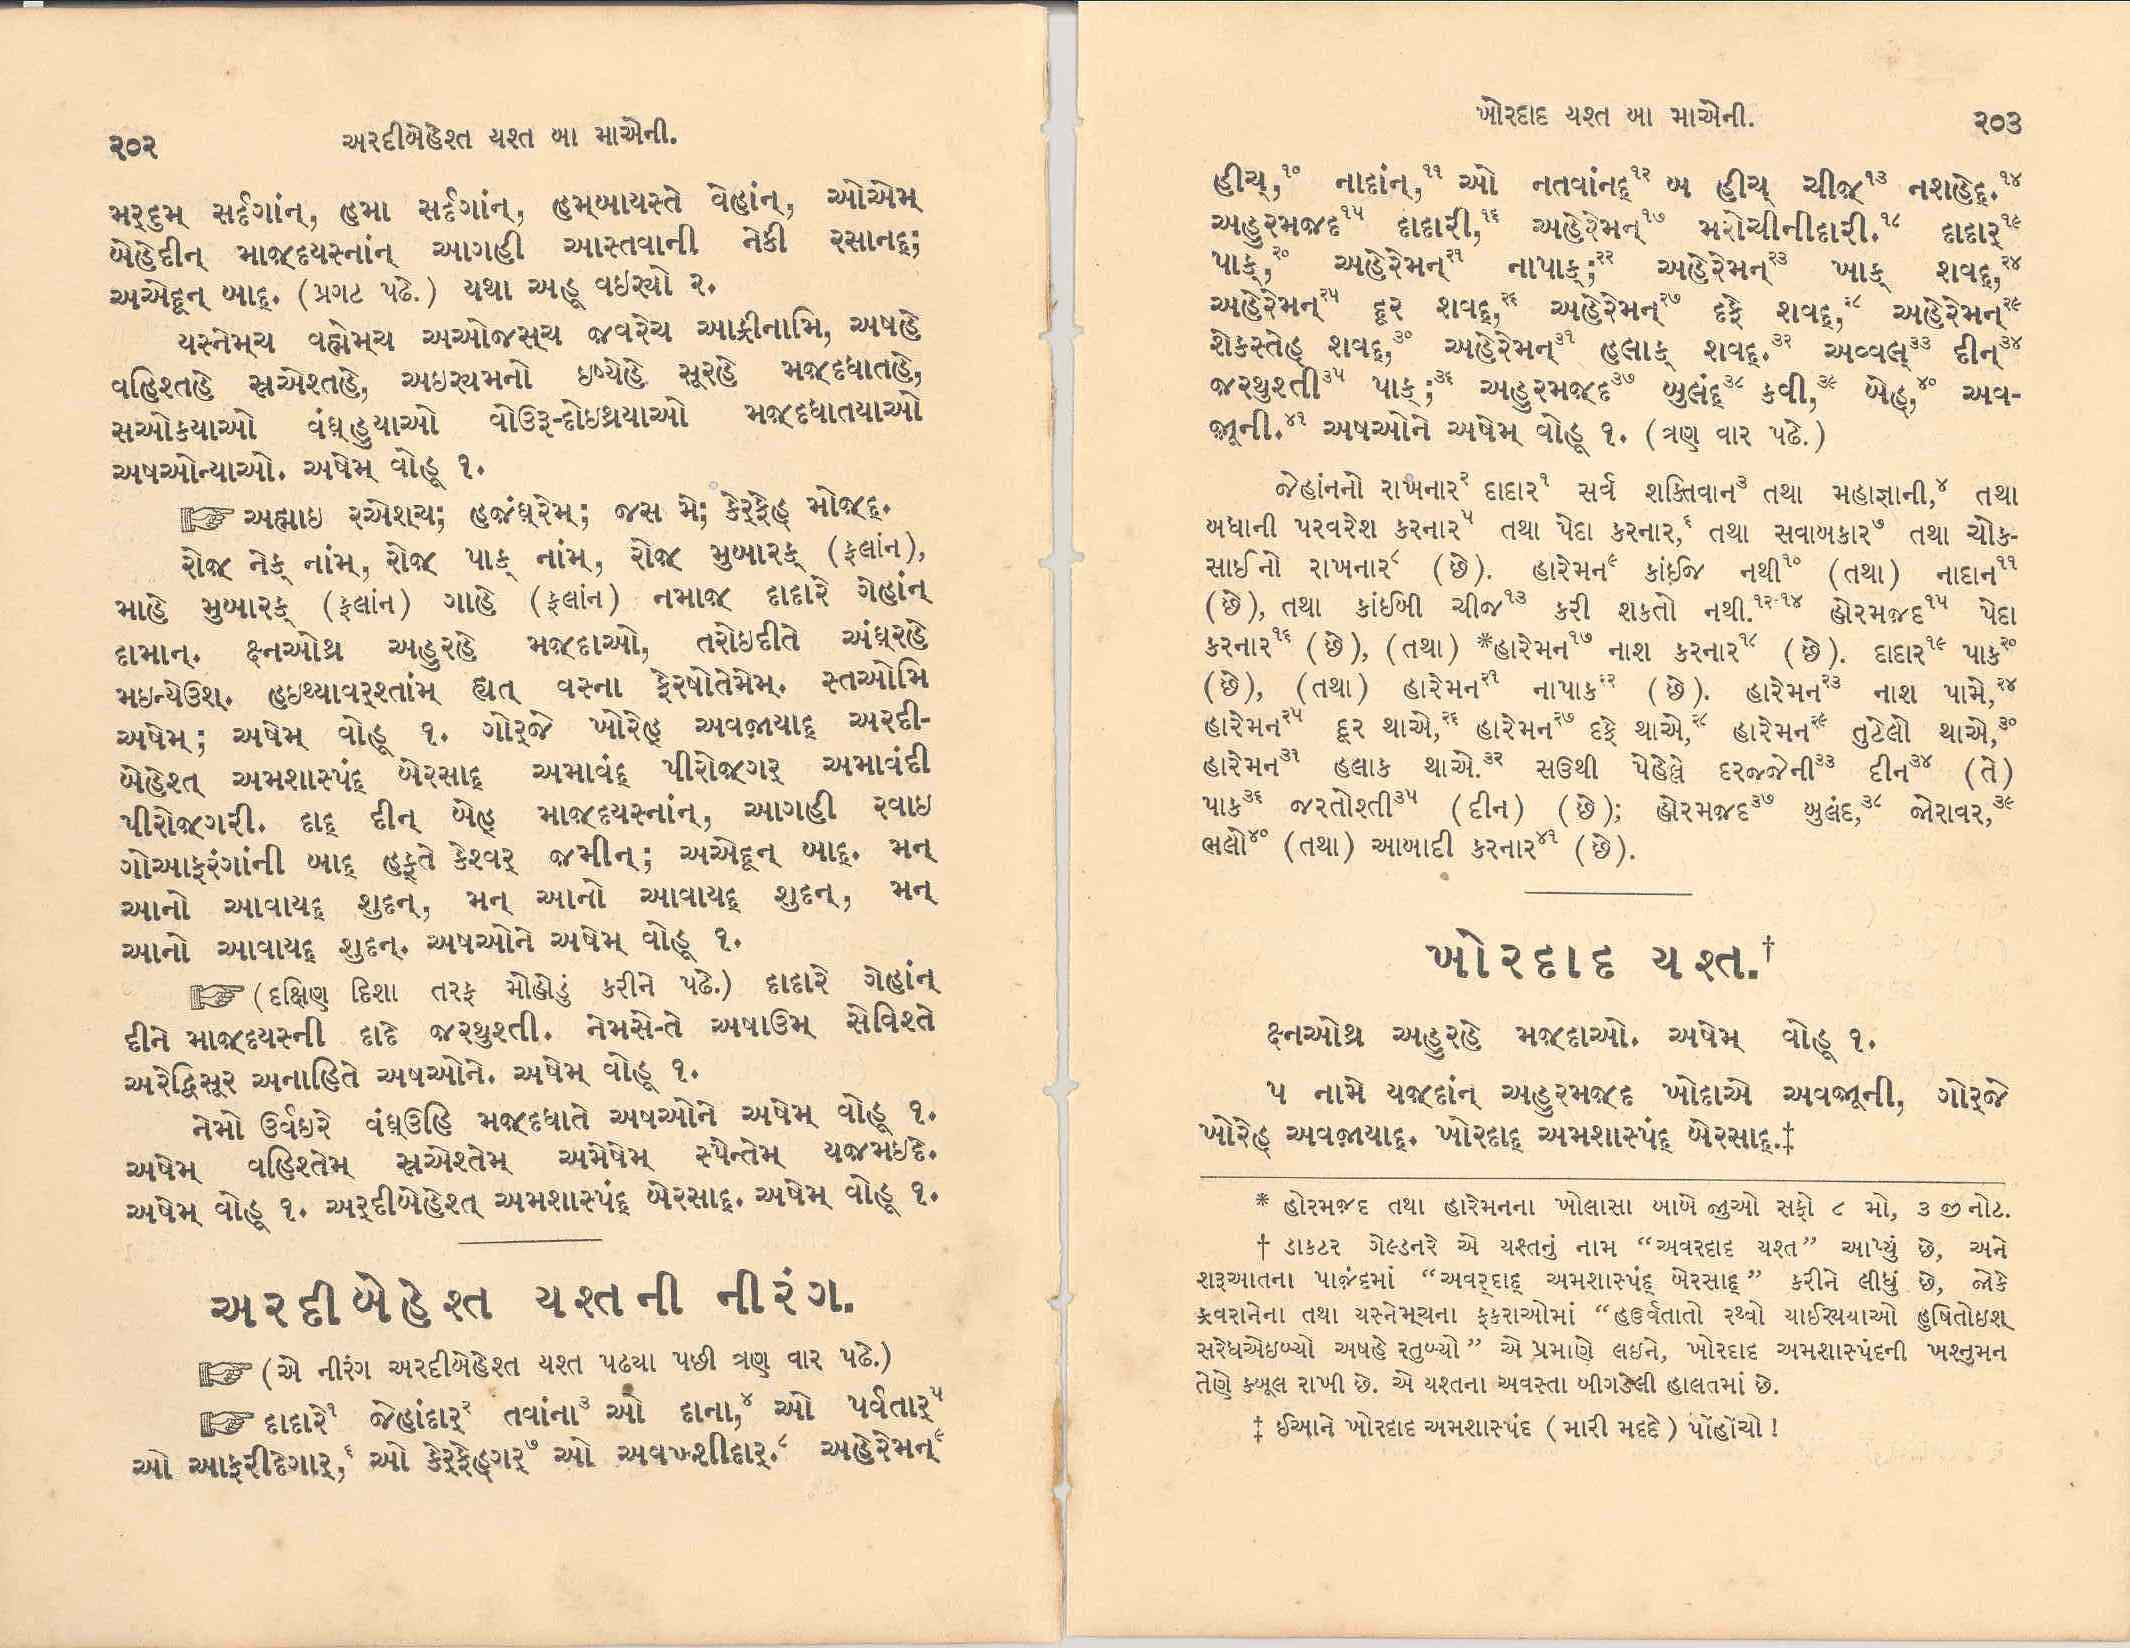 ૨૦૨ અરદીબેહેશ્ત યશ્ત બા માએની.
મર્‌દુમ્ સર્દગાંન્, હમા સર્દગાંન્, હમ્‌બાયસ્તે વેહાંન્, ઓએમ્
બેહેદીન્ માજ઼્દયસ્નાંન્ આગહી આસ્તવાની નેકી રસાનદ્;
અએદૂન્ બાદ્. (પ્રગટ પઢે.) યથા અહૂ વઇર્યો ૨.
યસ્નેમ્‌ચ વહ્મેમ્‌ચ અઓજસ્‌ચ જ઼વરેચ આફ્રીનામિ, અષહે
વહિશ્તહે સ્રએશ્તહે, અઇર્યમનો ઇષ્યેહે સૂરહે મજ઼્દધાતહે,
સઓકયાઓ વંઘ્‌હુયાઓ વોઉરૂ-દોઇથ્રયાઓ મજ઼્દધાતયાઓ
અષઓન્યાઓ. અષેમ્ વોહૂ ૧.
અહ્માઇ રએશ્‌ચ; હજ઼ંઘ્‌રેમ્; જસ મે; કેર્‌ફેહ્ મોજ઼્દ્.
રોજ઼ નેક્ નાંમ્, રોજ઼ પાક્ નાંમ્, રોજ઼ મુબારક્ (ફલાંન),
માહે મુબારક્ (ફલાંન) ગાહે (ફલાંન) નમાજ઼ દાદારે ગેહાંન્
દામાન્. ક્ષ્નઓથ્ર અહુરહે મજ઼્દાઓ, તરોઇદીતે અંઘ્‌રહે
મઇન્યેઉશ્. હઇથ્યાવર્‌શ્તાંમ્ હ્યત્ વસ્ના ફેરષોતેમેમ્. સ્તઓમિ
અષેમ્; અષેમ્ વોહૂ ૧. ગોર્‌જે ખોરેહ્ અવજ઼ાયાદ્ અરદી-
બેહેશ્ત્ અમશાસ્પંદ્ બેરસાદ્ અમાવંદ્ પીરોજ઼ગર્ અમાવંદી
પીરોજ઼ગરી. દાદ્ દીન્ બેહ્ માજ઼્દયસ્નાંન્, આગહી રવાઇ
ગોઆફ્‌રંગાંની બાદ્ હફ્‌તે કેશ્વર્ જ઼મીન્; અએદૂન્ બાદ્. મન્
આનો આવાયદ્ શુદન્, મન્ આનો આવાયદ્ શુદન્, મન્
આનો આવાયદ્ શુદન્. અષઓને અષેમ્ વોહૂ ૧.
(દક્ષિણ દિશા તરફ મોહોડું કરીને પઢે.) દાદારે ગેહાંન્
દીને માજ઼્દયસ્ની દાદે જ઼રથુશ્તી. નેમસે-તે અષાઉમ્ સેવિશ્તે
અરેદ્વિસૂર અનાહિતે અષઓને. અષેમ્ વોહૂ ૧.
નેમો ઉર્વઇરે વંઘ્‌ઉહિ મજ઼્દધાતે અષઓને અષેમ્ વોહૂ ૧.
અષેમ્ વહિશ્તેમ્ સ્રએશ્તેમ્ અમેષેમ્ સ્પેન્તેમ્ યજ઼મઇદે.
અષેમ્ વોહૂ ૧. અર્‌દીબેહેશ્ત્ અમશાસ્પંદ્ બેરસાદ્. અષેમ્ વોહૂ ૧.
અરદીબેહેશ્ત યશ્તની નીરંગ.
(એ નીરંગ અરદીબેહેશ્ત યશ્ત પઢયા પછી ત્રણ વાર પઢે.)
દાદારે૧ જેહાંદાર્૨ તવાંના૩ ઓ દાના,૪ ઓ પર્વતાર્૫
ઓ આફ્‌રીદેગાર્,૬ ઓ કેર્‌ફેહ્‌ગર્૭ ઓ અવખ્શીદાર્.૮ અહેરેમન્૯
ખોરદાદ યશ્ત બા માએની. ૨૦૩
હીચ્,૧૦ નાદાંન્,૧૧ ઓ નતવાંનદ્૧૨ બ હીચ્ ચીજ઼્૧૩ નશહેદ્.૧૪
અહુરમજદ૧૫ દાદારી,૧૬ અહેરેમન્૧૭ મરોચીનીદારી.૧૮ દાદાર્૧૯
પાક્,૨૦ અહેરેમન્૨૧ નાપાક્;૨૨ અહેરેમન્૨૩ ખાક્ શવદ્,૨૪
અહેરેમન્૨૫ દૂર શવદ્,૨૬ અહેરેમન્૨૭ દફે શવદ્,૨૮ અહેરેમન્૨૯
શેકસ્તેહ્ શવદ્,૩૦ અહેરેમન્૩૧ હલાક્ શવદ્.૩૨ અવ્વલ્૩૩ દીન્૩૪
જ઼રથુશ્તી૩૫ પાક્;૩૬ અહુરમજ઼્દ૩૭ બુલંદ્૩૮ કવી,૩૯ બેહ્,૪૦ અવ-
જ઼ૂની.૪૧ અષઓને અષેમ્ વોહૂ ૧. (ત્રણ વાર પઢે.)
જેહાંનનો રાખનાર૨ દાદાર૧ સર્વ શક્તિવાન૩ તથા મહાજ્ઞાની,૪ તથા
બધાની પરવરેશ કરનાર૫ તથા પેદા કરનાર,૬ તથા સવાબકાર૭ તથા ચોક-
સાઈનો રાખનાર૮ (છે). હારેમન૯ કાંઈજ નથી૧૦ (તથા) નાદાન૧૧
(છે), તથા કાંઈબી ચીજ૧૩ કરી શકતો નથી.૧૨-૧૪ હોરમજ઼દ૧૫ પેદા
કરનાર૧૬ (છે), (તથા) *હારેમન૧૭ નાશ કરનાર૧૮ (છે). દાદાર૧૯ પાક૨૦
(છે), (તથા) હારેમન૨૧ નાપાક૨૨ (છે). હારેમન૨૩ નાશ પામે,૨૪
હારેમન૨૫ દૂર થાએ,૨૬ હારેમન૨૭ દફે થાએ,૨૮ હારેમન૨૯ તુટેલો થાએ,૩૦
હારેમન૩૧ હલાક થાએ.૩૨ સઉથી પેહેલે દરજ્જેની૩૩ દીન૩૪ (તે)
પાક૩૬ જરતોશ્તી૩૫ (દીન) (છે); હોરમજ઼દ૩૭ બુલંદ,૩૮ જોરાવર,૩૯
ભલો૪૦ (તથા) આબાદી કરનાર૪૧ (છે).
ખોરદાદ યશ્ત.†
ક્ષ્નઓથ્ર અહુરહે મજ઼દાઓ. અષેમ્ વોહૂ ૧.
પ નામે યજ઼્દાંન્ અહુરમજ઼્દ ખોદાએ અવજ઼ૂની, ગોર્‌જે
ખોરેહ્ અવજ઼ાયાદ્. ખોરદાદ્ અમશાસ્પંદ્ બેરસાદ્.‡
* હોરમજ઼દ તથા હારેમનના ખોલાસા બાબે જુઓ સફો ૮ મો, ૩ જી નોટ.
† ડાકટર ગેલ્ડનરે એ યશ્તનું નામ “અવરદાદ યશ્ત” આપ્યું છે, અને
શરૂઆતના પાજ઼ંદમાં “અવર્‌દાદ્ અમશાસ્પંદ્ બેરસાદ્” કરીને લીધું છે, જોકે
ફ્રવરાનેના તથા યસ્નેમ્‌ચના ફકરાઓમાં “હઉર્વતાતો રથ્વો યાઈર્યયાઓ હુષિતોઇશ્
સરેધએઇબ્યો અષહે રતુબ્યો” એ પ્રમાણે લઇને, ખોરદાદ અમશાસ્પંદની ખશ્નુમન
તેણે કબૂલ રાખી છે. એ યશ્તના અવસ્તા બીગડેલી હાલતમાં છે.
‡ ઈઆને ખોરદાદ અમશાસ્પંદ (મારી મદદે) પોંહોંચો!